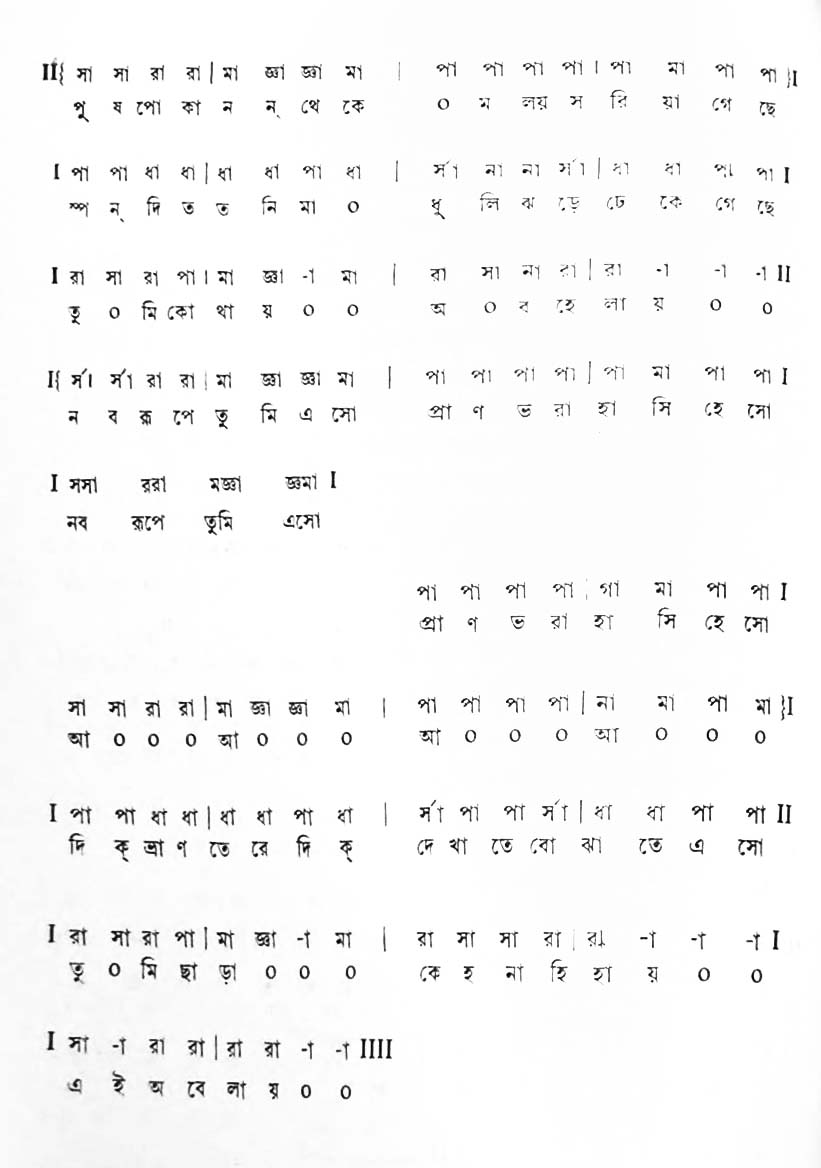 II{ সা সা রা রা | মা জ্ঞা জ্ঞা মা | পা পা পা পা । পা মা পা পা }I
পু ষ পো কা ন ন্ থে কে ০ ম লয় স রি য়া গে ছে
I পা পা ধা ধা | ধা ধা পা ধা | র্সা না না র্সা | ধা ধা পা পা I
স্প ন্ দি ত ত নি মা ০ ধূ লি ঝ ড়ে ঢে কে গে ছে
I রা সা রা পা । মা জ্ঞা -া মা | রা সা না রা | রা -া -া -া II
তু ০ মি কো থা য় ০ ০ অ ০ ব হে লা য় ০ ০
I{ র্সা র্সা রা রা | মা জ্ঞা জ্ঞা মা | পা পা পা পা | পা মা পা পা I
ন ব রূ পে তু মি এ সো প্রা ণ ভ রা হা সি হে সো
I সসা ররা মজ্ঞা জ্ঞমা I
নব রূপে তুমি এসো
পা পা পা পা | গা মা পা পা I
প্রা ণ ভ রা হা সি হে সো
সা সা রা রা | মা জ্ঞা জ্ঞা মা | পা পা পা পা | না মা পা মা }I
আ ০ ০ ০ আ ০ ০ ০ আ ০ ০ ০ আ ০ ০ ০
I পা পা ধা ধা | ধা ধা পা ধা | র্সা পা পা র্সা | ধা ধা পা পা II
দি ক্ ভ্রা ণ তে রে দি ক্ দে খা তে বো ঝা তে এ সো
I রা সা রা পা | মা জ্ঞা -া মা | রা সা সা রা | রা -া -া -া I
তু ০ মি ছা ড়া ০ ০ ০ কে হ না হি হা য় ০ ০
I সা -া রা রা | রা রা -া -া IIII
এ ই অ বে লা য় ০ ০